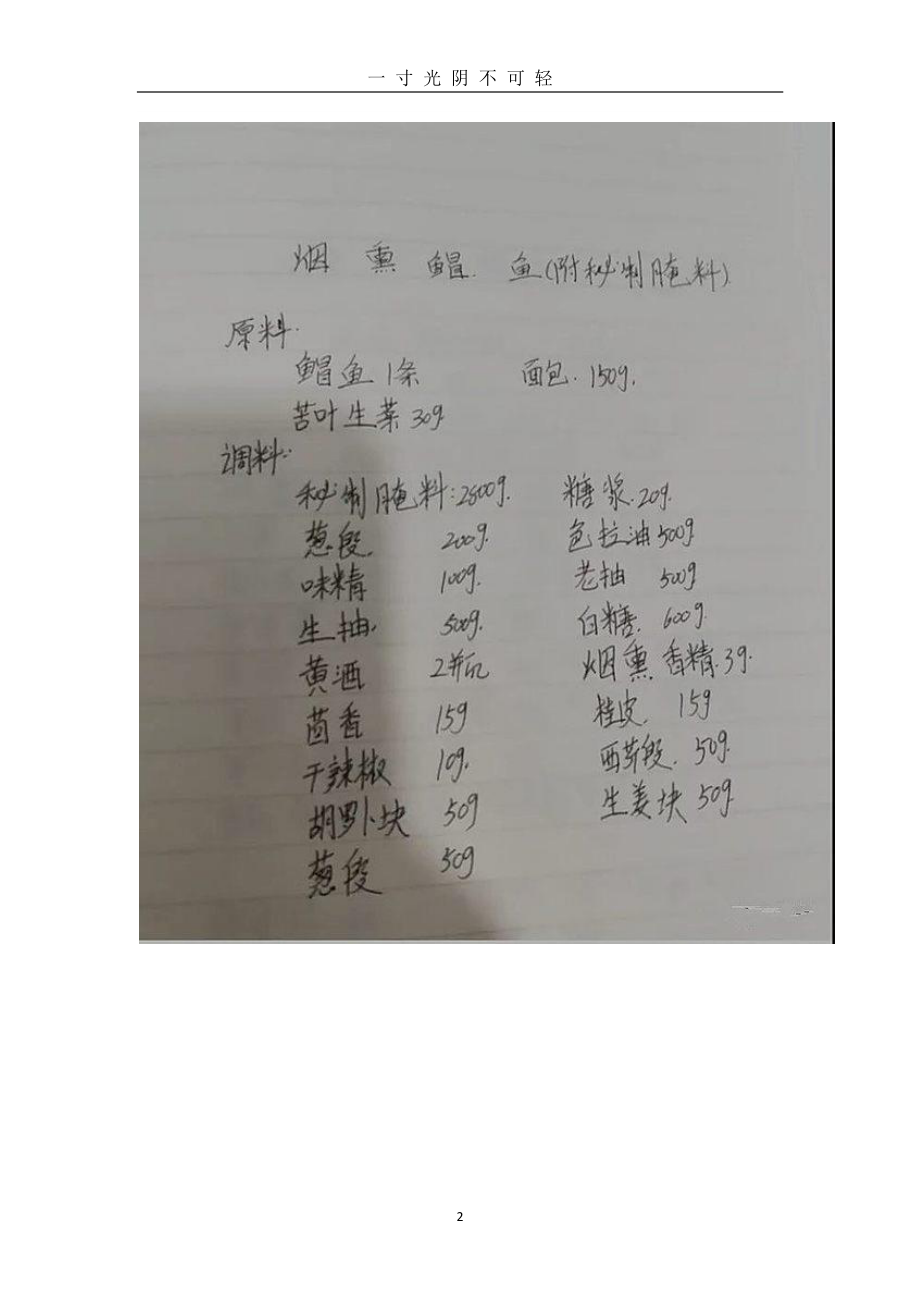 一寸光阴不可轻
烟熏鲳鱼(附秘制腌料)
原料.
鲳鱼1条 面包.150g.
苦叶生菜30g
调料:
秘制腌料:2800g. 糖浆.20g.
葱段. 200g. 色拉油500g
味精 100g. 老抽 500g
生抽. 500g. 白糖. 600g.
黄酒 2瓶 烟熏香精.3g.
茴香 15g 桂皮. 15g
干辣椒 10g. 西芹段.50g.
胡萝卜块 50g 生姜块50g.
葱段 50g
2